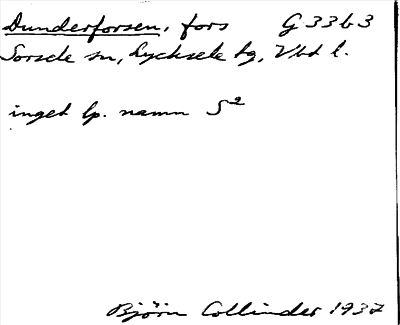 Dunderforsen, fors G 33 b 3
Sorsele sn, Lycksele tg, Vbd l.
inget lp. namn S²
Björn Collinder 1937